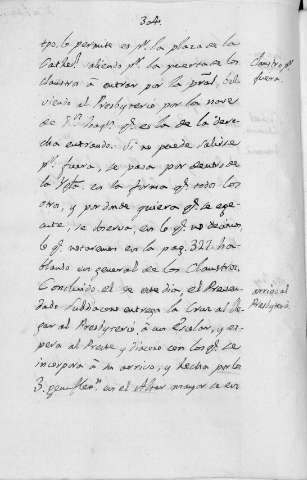 304.
tpo. lo permite es pr. la plaza de la
Cathel. saliendo pr. la puerta de los
Claustro á entrar por la pral. bol-
viendo al Presbyterio por la nave
de Sn. qe. es la de la dere-
cha entrando. Si no puede salirse
pr. fuera, se pasa por dentro de
la Yga. en la forma qe. todos los
otros, y por donde quiera qe. se exe-
cute, se observa, en lo qe. no decimos,
lo qe. notaremos en la pag. 322. ha-
blando en general de los Claustros.
Concluido el de este dia, el Presen-
dado Subdiacono entrega la Cruz al lle-
gar al Presbyterio, á un Escolar, y es-
pera al Preste y Diacono con los qe. se
incorpora á su arrivo, y hecha por los
3. en el Altar mayor se en
Claustro pr.
fuera.
arrivo al
Presbyterio.